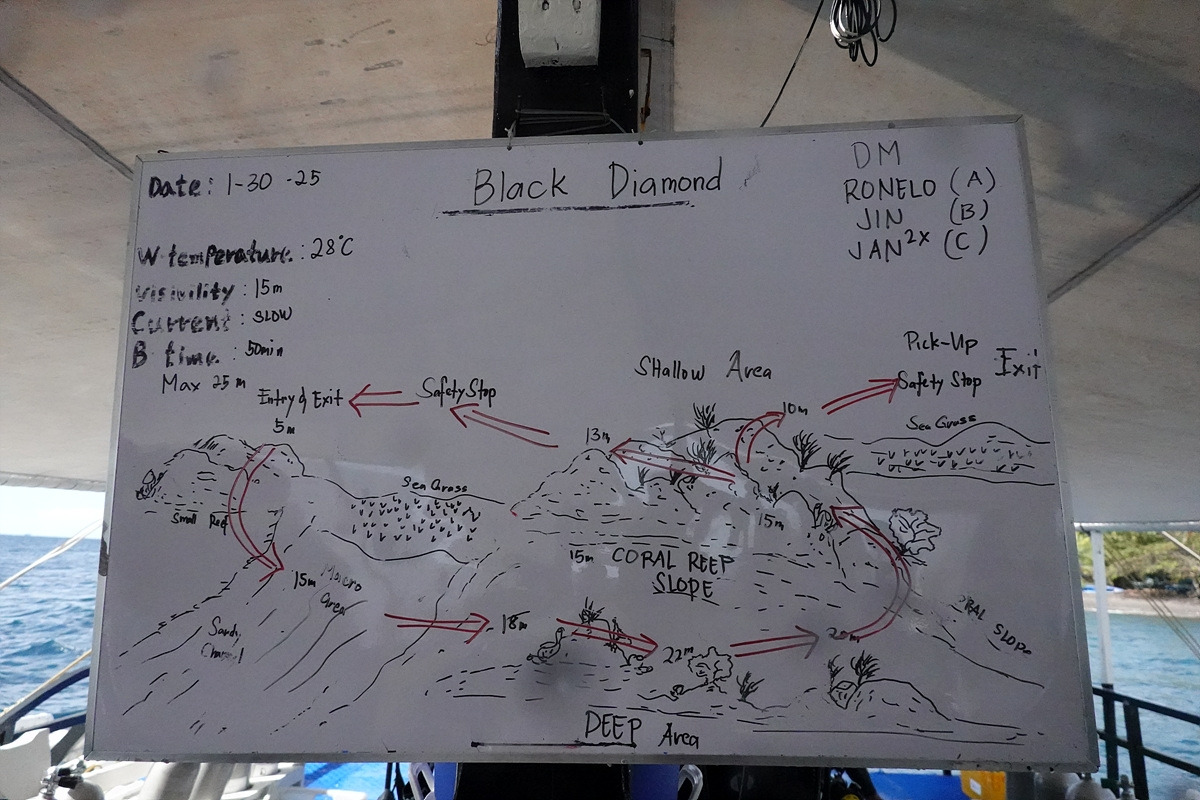 Date: 1-30-25
Black Diamond
DM
RONELO (A)
JIN (B)
JAN 2x (C)
W temperature: 28°C
Visibility: 15m
Current: SLOW
B time: 50min
Max 25m
Entry & Exit
5m
Safety Stop
Shallow Area
Pick-Up
Safety Stop
Exit
10m
13m
Sea Grass
Sea Grass
Small Reef
15m
15m
CORAL REEP
SLOPE
15m
Macro
Area
Sandy
18m
22m
20m
SLOPE
DEEP Area